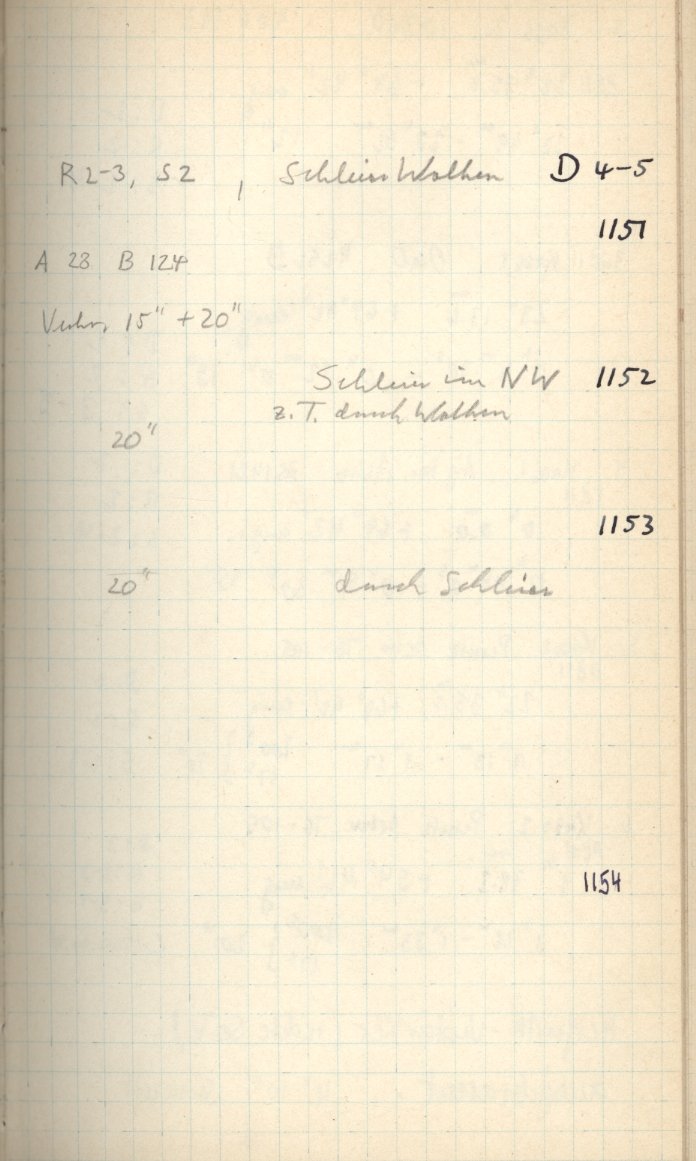 R 2-3, S 2 , Schleier Wolken D 4-5
1151
A 28 B 124
15" + 20"
Schleier im NW 1152
z.T. durch Wolken
20"
1153
20" durch Schleier
1154